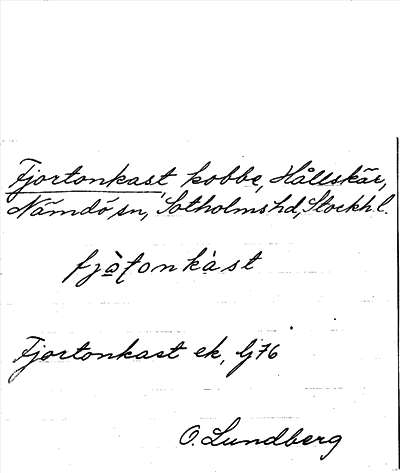 Fjortonkast, kobbe, Hållskär,
Nämdö sn, Sotholms hd, Stockh l.
fjò̱ʈonkàst
Fjortonkast ek, lj 76
O. Lundberg